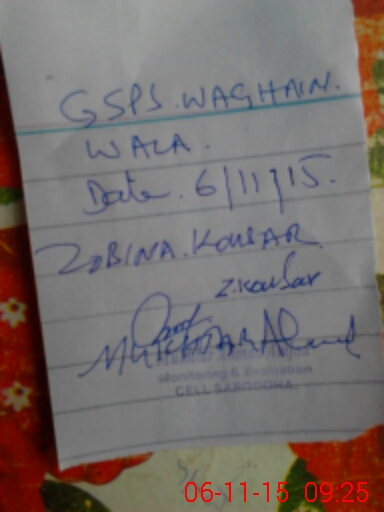 GSPS.WAGHAIN.
WALA.
Date. 6/11/15.
ZOBINA.KOUSAR.
Z.Kousar
Monitoring & Evaluation
CELL SARGODHA.
06-11-15 09:25